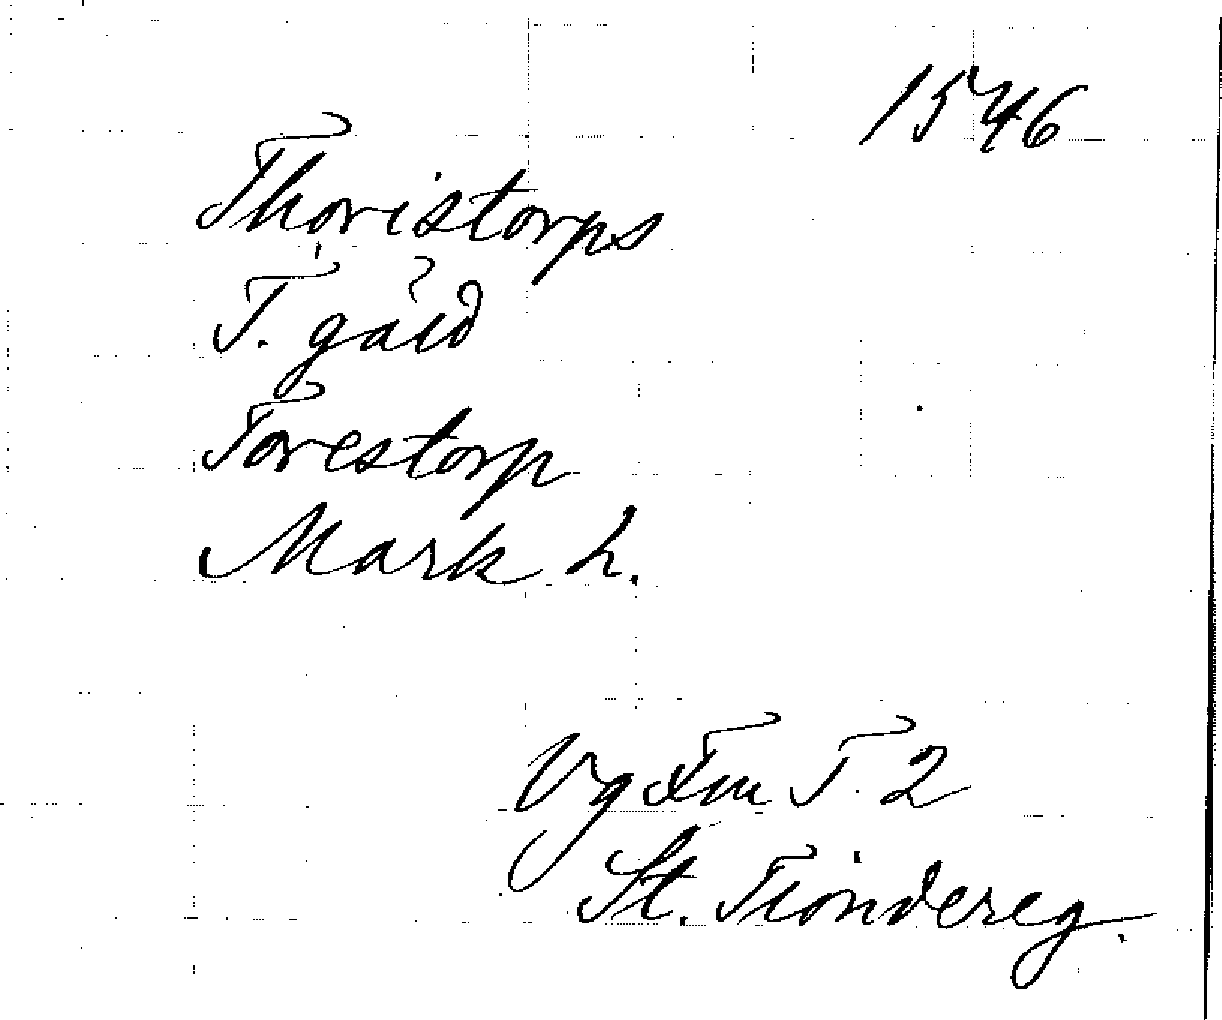 1546
Thoristorps
T. gäld
Torestorp
Mark h.
Vg Fm T. 2
St. Tiondereg.